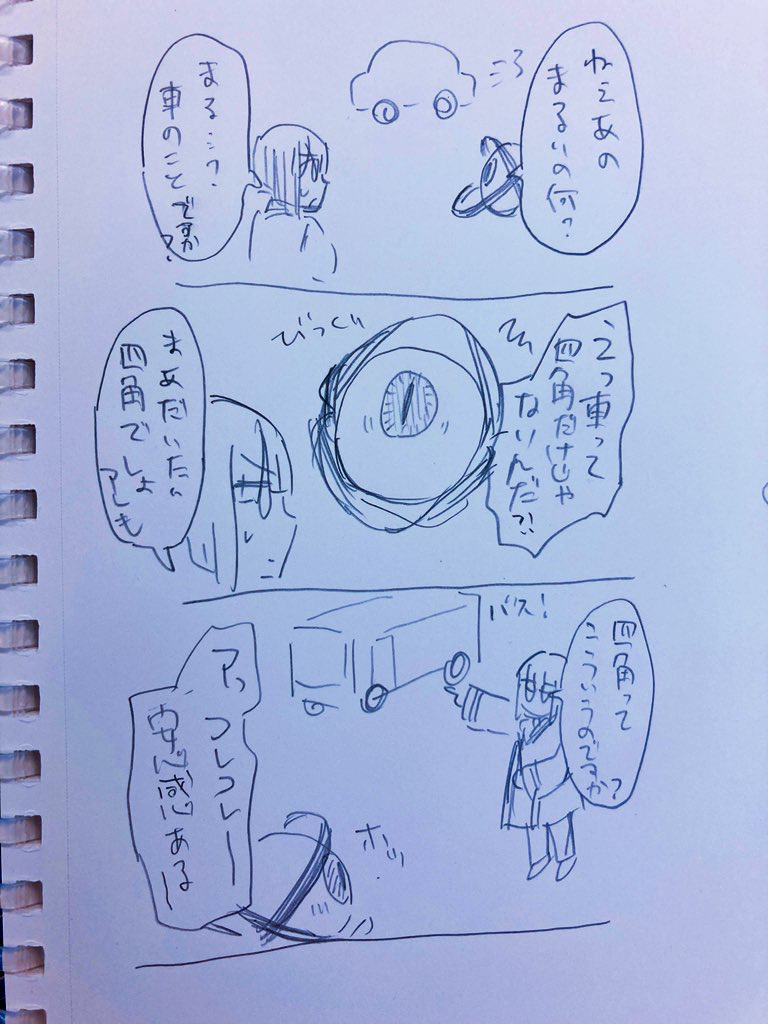 ねえあの
まるいの何?
ころ
まる…?
車のことですか?
えっ車って
四角だけじゃ
ないんだ?!
びっくり
まあだいたい
四角でしょ
アレも
四角って
こういうのですか?
バス!
アっ
コレコレー
安心感あるー
ホッ